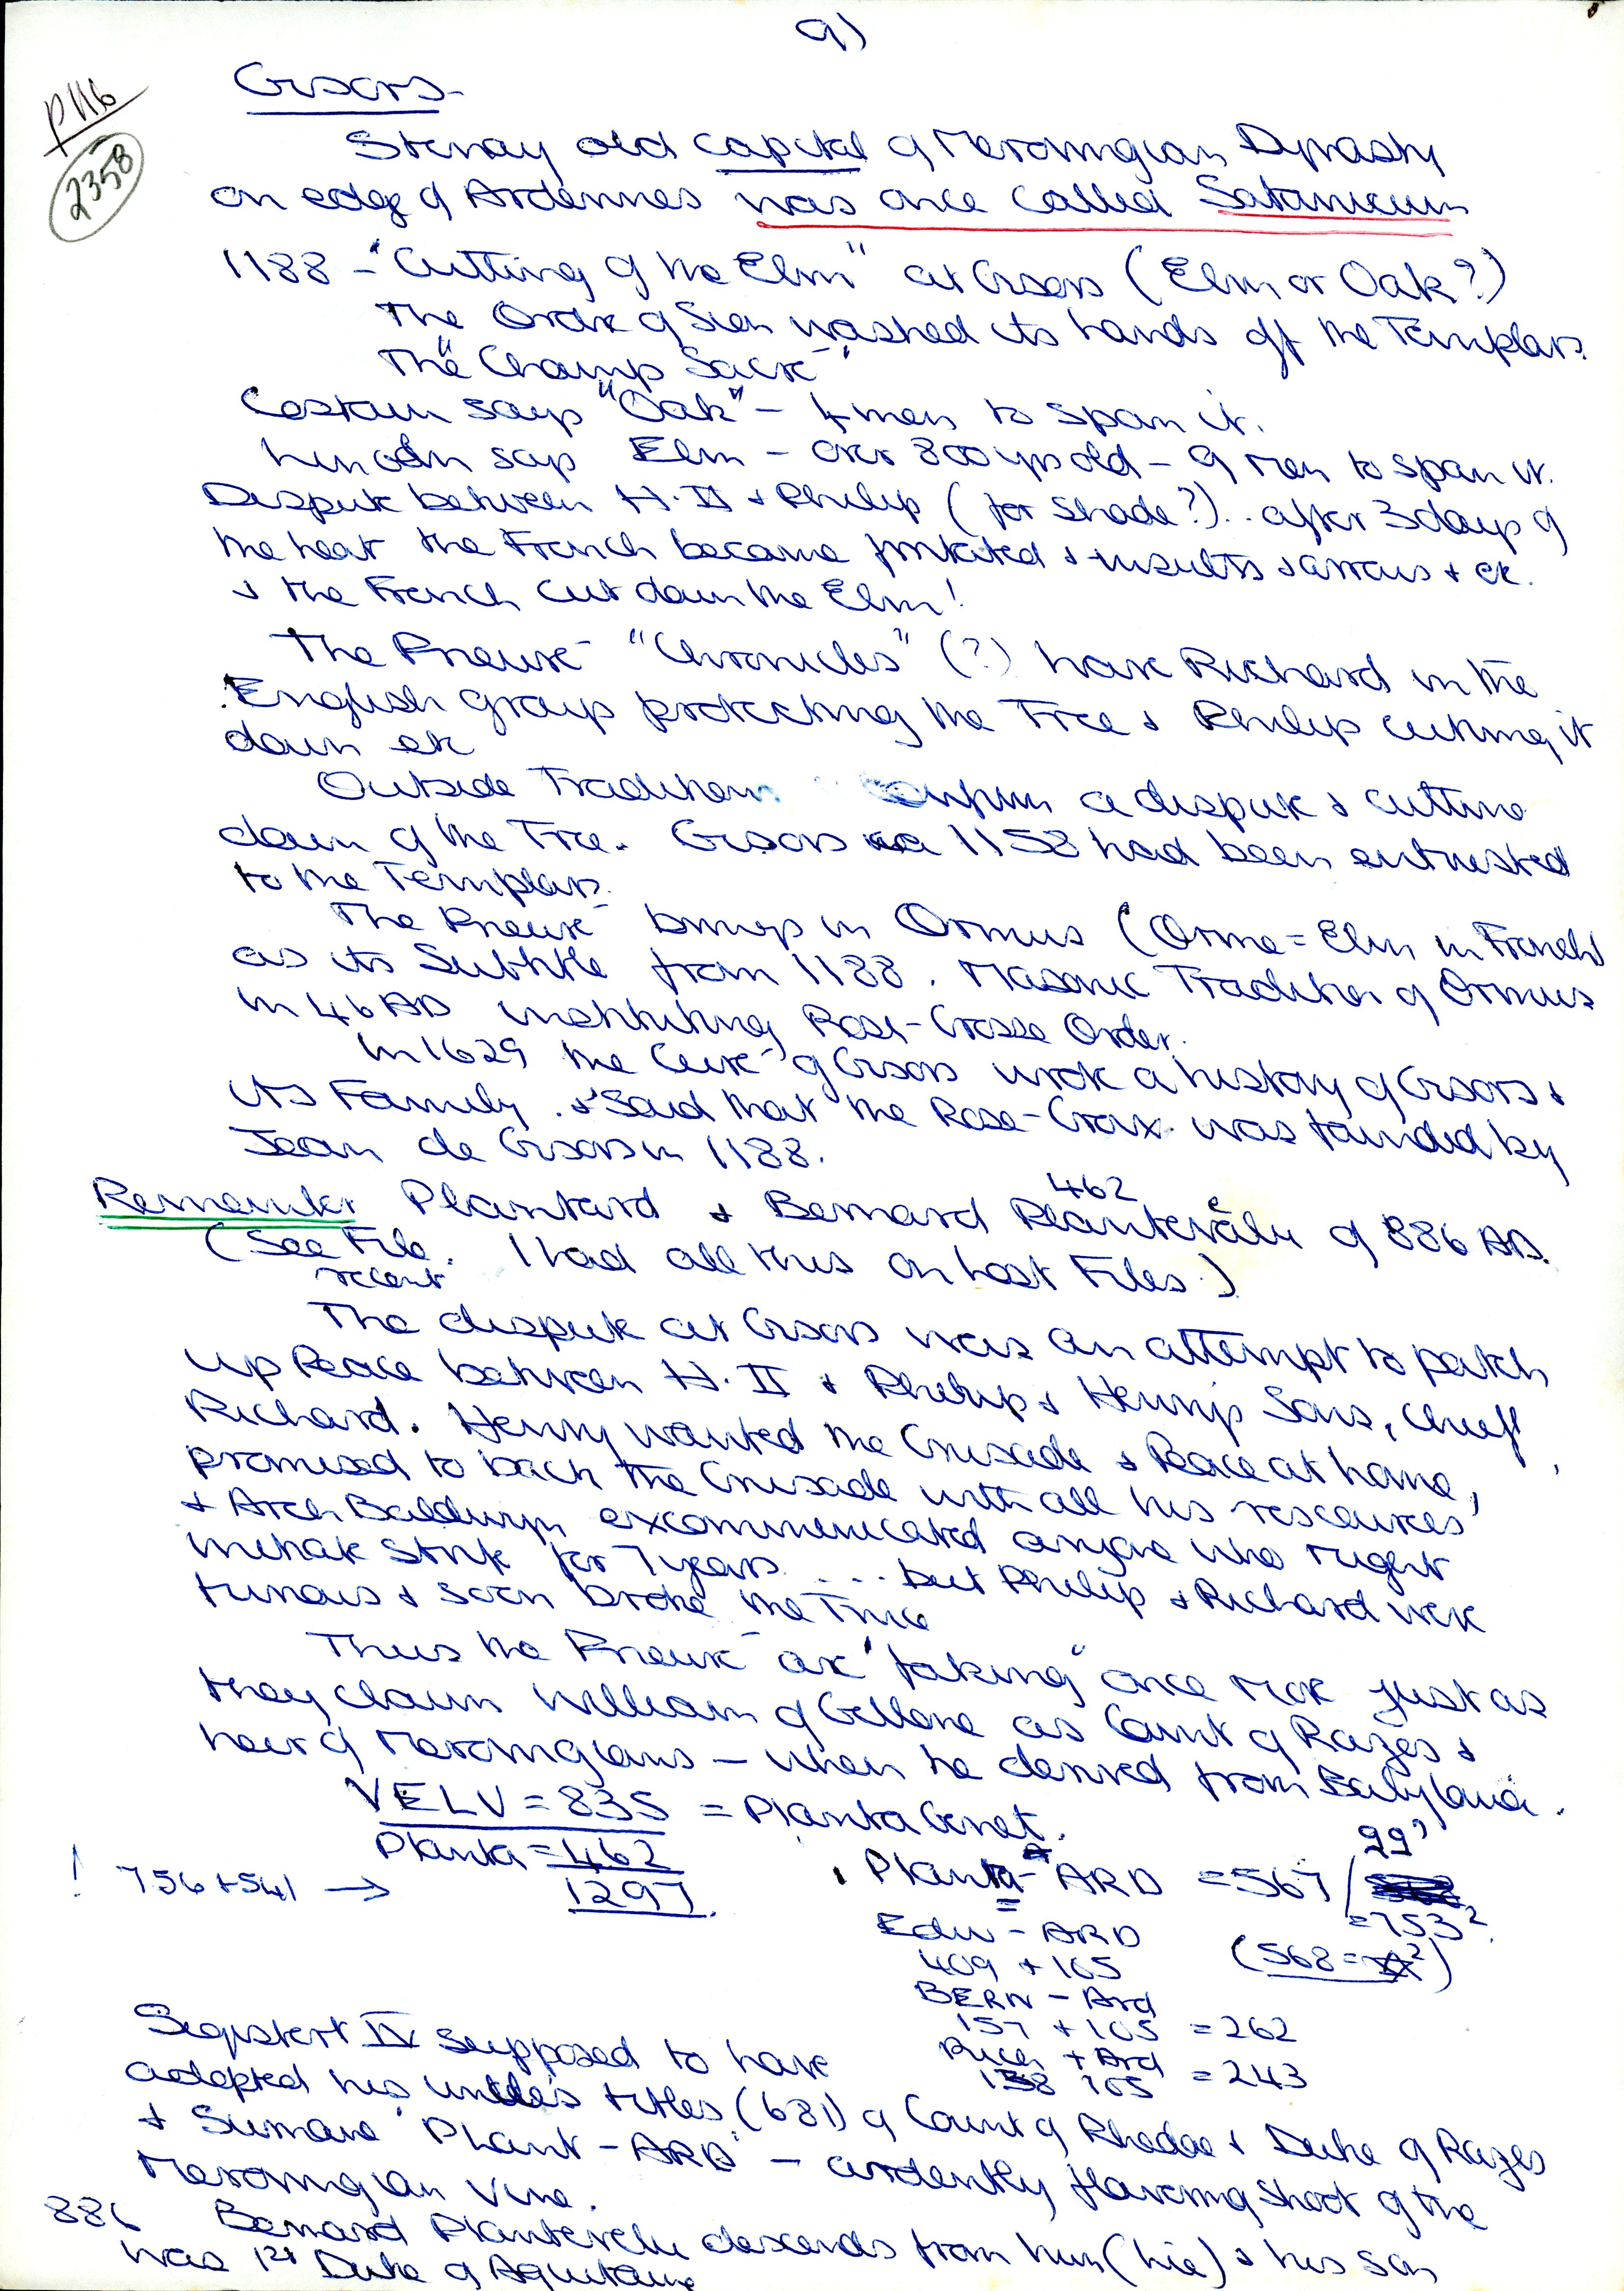 9)
P116
2358
Gisors-
Stenay old capital of Merovingian Dynasty
on edge of Ardennes was once called Satanicum
1188 - "Cutting of the Elm" at Gisors (Elm or Oak?)
The Ordre of Sion washed its hands off the Templars
The "Champ Sacré"
Costain says "Oak" - 4 men to span it.
Lincoln says Elm - over 800 yrs old - 9 men to span it.
Dispute between H.II & Philip (for shade?).. after 3 days of
the heat the French became irritated & insults & arrows & etc.
& the French cut down the Elm!
The Prieuré "Chronicles" (?) have Richard in the
English group protecting the Tree & Philip cutting it
down etc
Outside Tradition confirm a dispute & cutting
down of the Tree. Gisors 1158 had been entrusted
to the Templars.
The Prieuré brings in Ormus (Orme = Elm in French)
as its Subtitle from 1188. Masonic Tradition of Ormus
in 46 AD instituting Rose-Crosse Order.
In 1629 the Curé of Gisors wrote a history of Gisors &
its Family. & said that the Rose-Croix was founded by
Jean de Gisors in 1188.
Remember Plantard & Bernard Plantevelu of 886 AD.
462
(See File. I had all this on Lost Files.)
recent
The dispute at Gisors was an attempt to patch
up Peace between H.II & Philip & Henry's Sons, chief
Richard. Henry wanted the Crusade & Peace at home,
promised to back the Crusade with all his resources
& Arch Baldwyn excommunicated anyone who might
initiate strife for 7 years .... but Philip & Richard were
furious & soon broke the Truce
Thus the Prieuré are "faking" once more just as
they claim William of Gellone as Count of Razes &
heir of Merovingians - when he derived from Babylonia.
VELU = 835 = Planta Genet.
Planta = 462
! 756 + 541 → 1297
Planta-ARD = 567 / 99²
= 753²
Edw - ARD (568 = ²)
409 + 105
BERN - Ard
157 + 105 = 262
Ricch + Ard
138 105 = 243
Sigisbert IV supposed to have
adopted his uncle's titles (681) of Count of Rhedae & Duke of Razes
& Surname 'Plant-ARD' - ardently flowering shoot of the
Merovingian Vine.
886 Bernard Plantevelu descends from him (he) & his son
was 1st Duke of Aquitaine